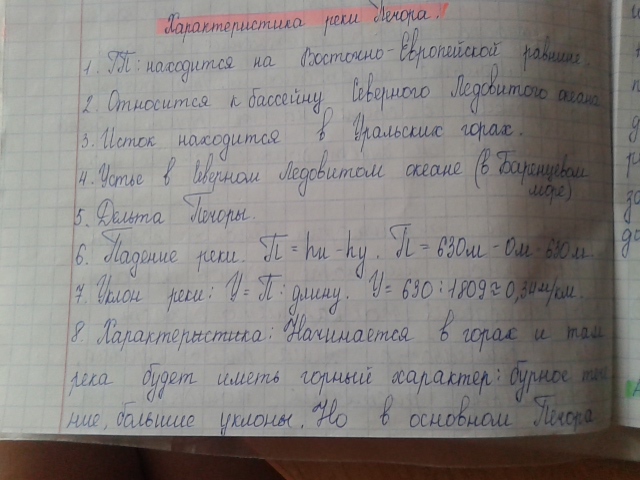 Характеристика реки Печора.
1. ГП: находится на Восточно-Европейской равнине.
2. Относится к бассейну Северного Ледовитого океана
3. Исток находится в Уральских горах.
4. Устье в Северном Ледовитом океане (в Баренцевом
море)
5. Дельта Печоры.
6. Падение реки. П = hи - hу. П = 630м - 0м - 630м
7. Уклон реки: У = П : длину. У = 630 : 1809 ≈ 0,34м/км.
8. Характеристика: Начинается в горах и там
река будет иметь горный характер: бурное тече
ние, большие уклоны. Но в основном Печора